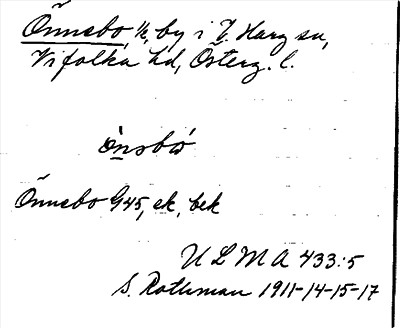 Önnebo, ½, by i V. Harg sn,
Vifolka hd, Österg. l.
ònsbò
Önnebo G45, ek, bek
ULMA 433:5
S. Rothman 1911-14-15-17